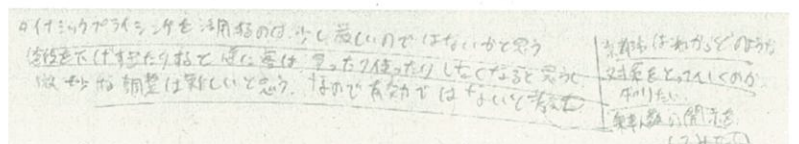 ダイナミックプライシングを活用するのは、少し厳しいのではないかと思う
値段を下げすぎたりすると逆に客は乗ったり使ったりしなくなると思うし
微妙な調整は難しいと思う。なので有効ではないと考えた
京都市はこれからどのような
対策をとっていくのか
知りたい。
乗車人数の開示を